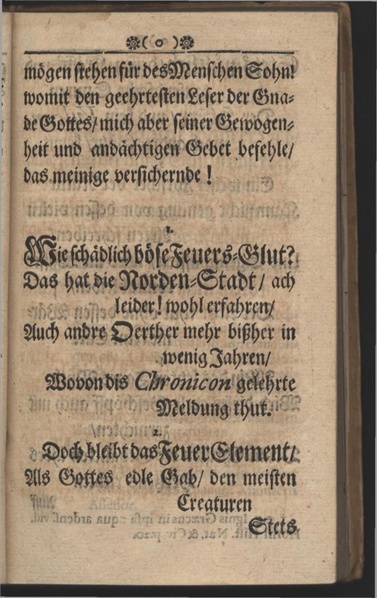 (o)
mögen stehen für des Menschen Sohn!
womit den geehrtesten Leser der Gna-
de Gottes/ mich aber seiner Gewogen-
heit und andächtigen Gebet befehle/
das meinige versichernde!
1.
Wie schädlich böse Feuers-Glut?
Das hat die Norden-Stadt/ ach
leider! wohl erfahren/
Auch andre Oerther mehr bißher in
wenig Jahren/
Wovon dis Chronicon gelehrte
Meldung thut.
2.
Doch bleibt das Feuer Element/
Als Gottes edle Gab/ den meisten
Creaturen
Stets